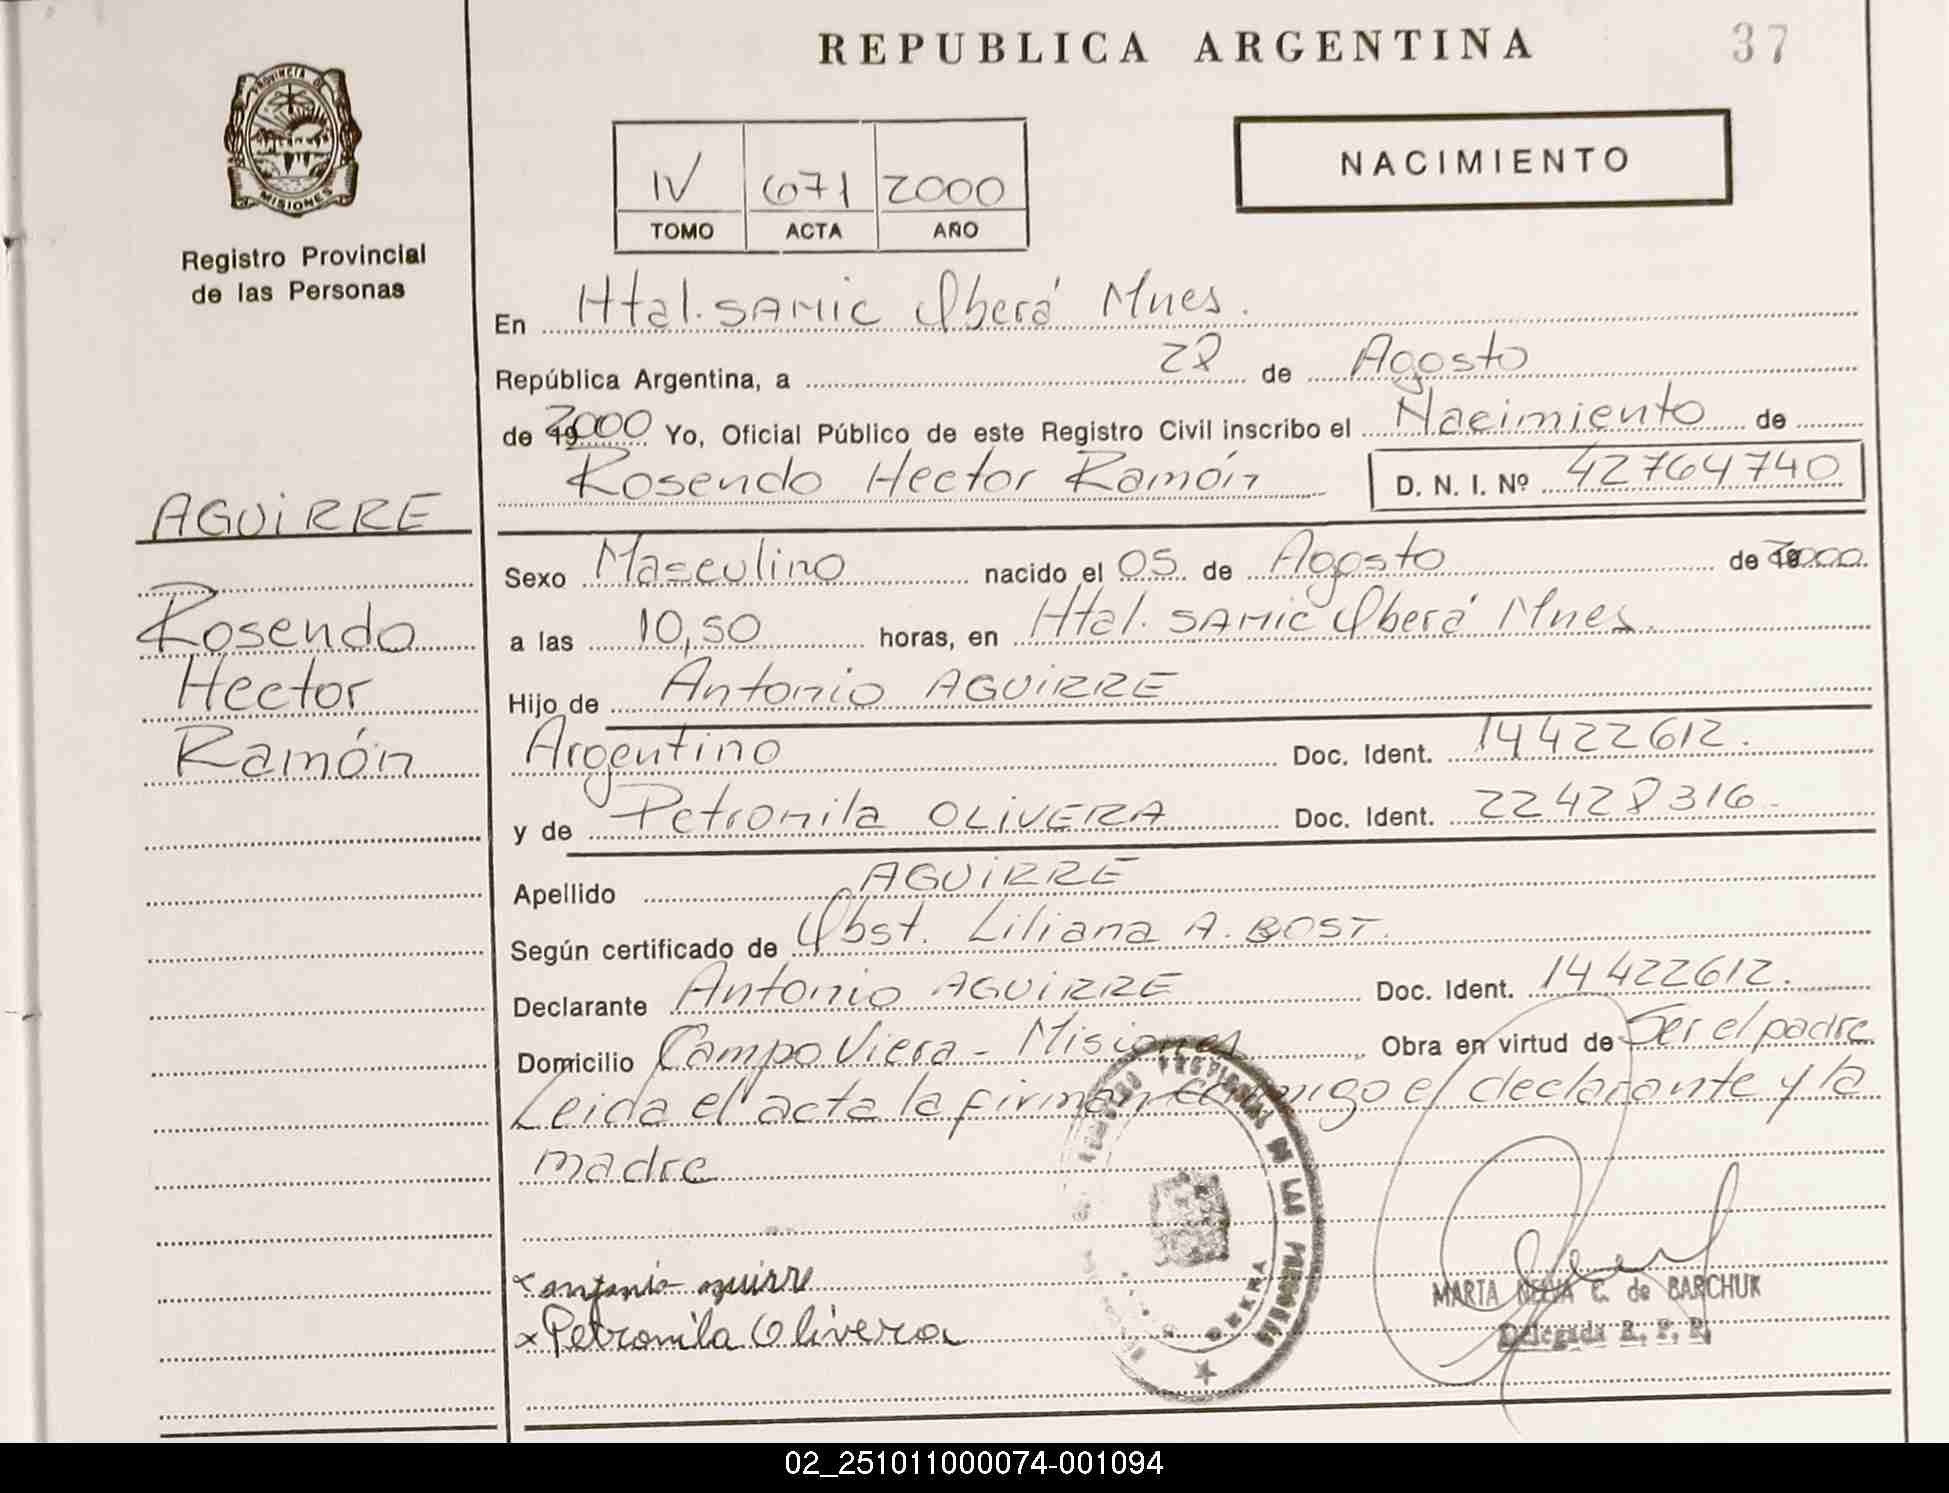 REPUBLICA ARGENTINA
37
PROVINCIA DE
MISIONES
Registro Provincial
de las Personas
IV 671 2000
TOMO ACTA AÑO
NACIMIENTO
En Htal. SAMIC Oberá Mnes.
República Argentina, a 28 de Agosto
de 2000 Yo, Oficial Público de este Registro Civil inscribo el Nacimiento de
Rosendo Hector Ramón D. N. I. Nº 42764740
AGUIRRE
Rosendo
Hector
Ramón
Sexo Masculino nacido el 05 de Agosto de 2000
a las 10,50 horas, en Htal. SAMIC Oberá Mnes.
Hijo de Antonio AGUIRRE
Argentino Doc. Ident. 14422612.
y de Petronila OLIVERA Doc. Ident. 22428316.
Apellido AGUIRRE
Según certificado de Obst. Liliana A. BOST.
Declarante Antonio AGUIRRE Doc. Ident. 14422612.
Domicilio Campo Viera - Misiones Obra en virtud de Ser el padre
Leida el acta la firman conmigo el declarante y la
madre
x antonio aguirre
x Petronila Olivera
PROVINCIAL DE LAS PERSONAS
OBERA
MARTA C. de BARCHUK
Delegada R. P. P.
02_251011000074-001094